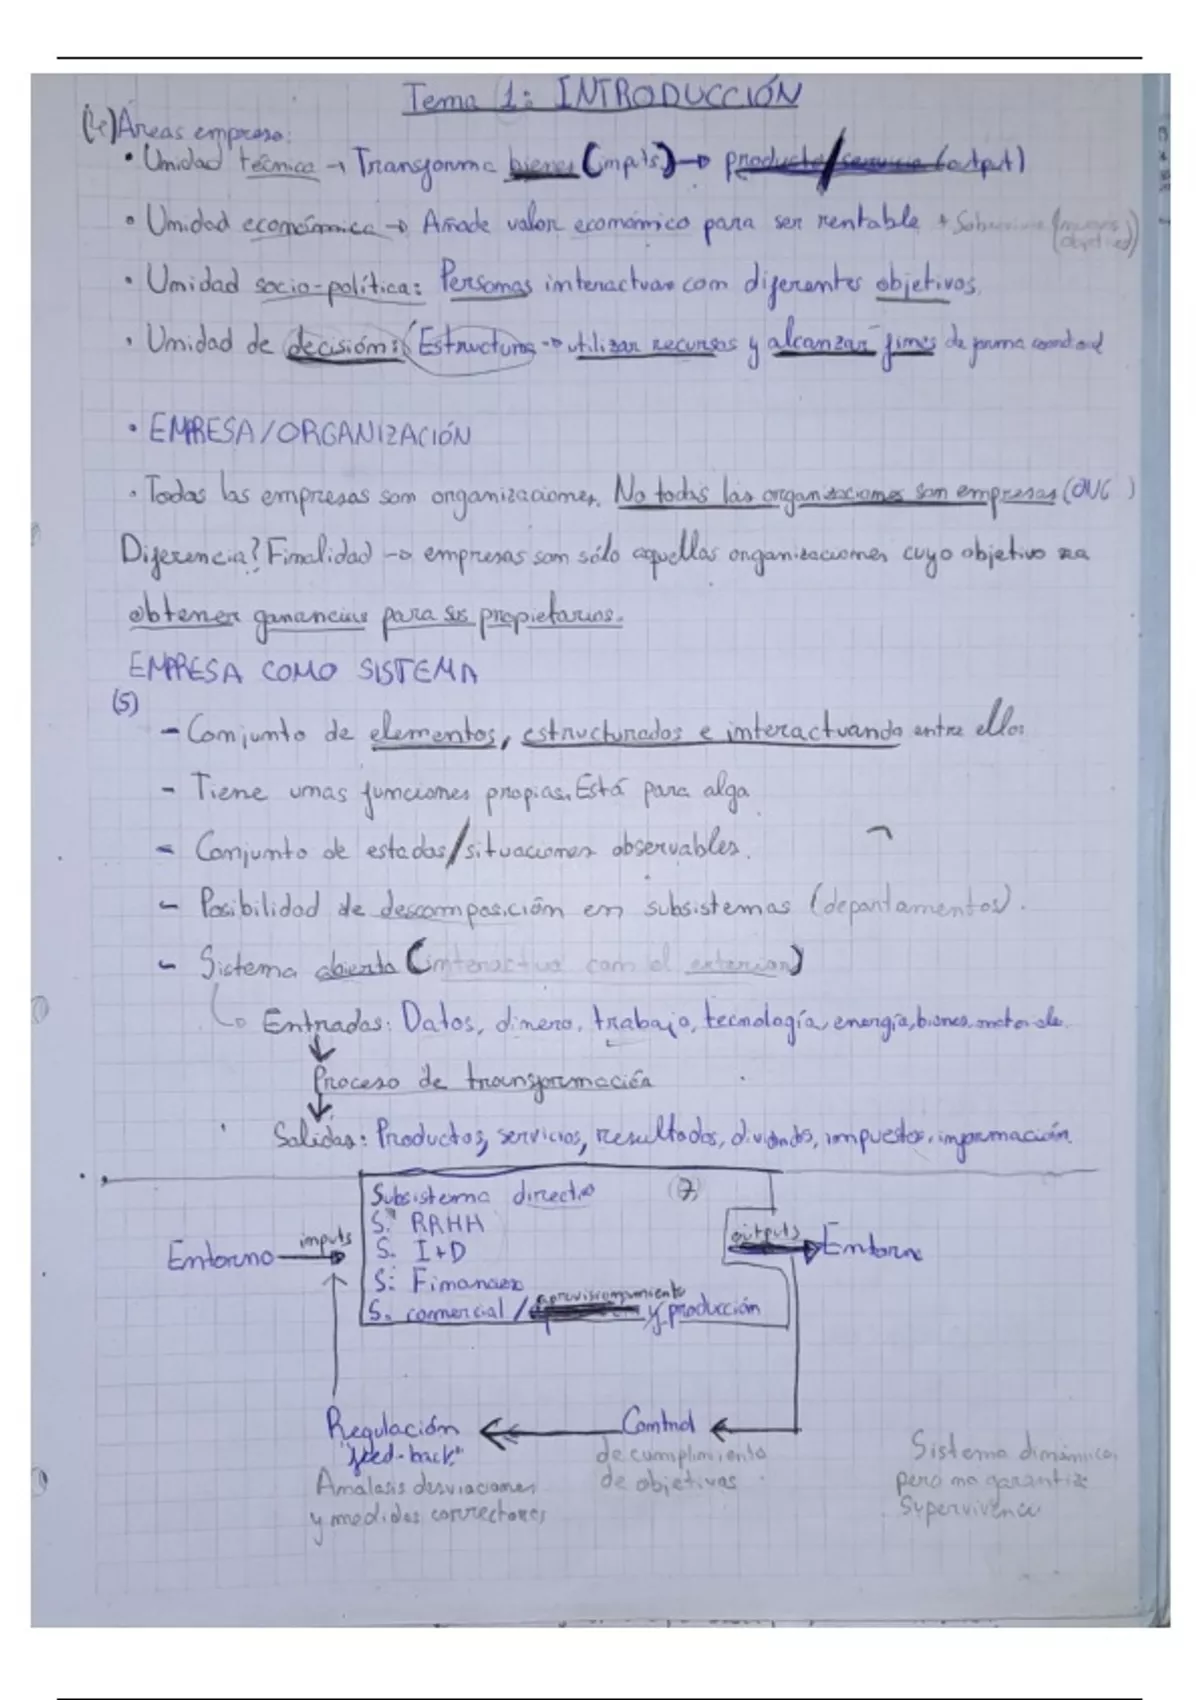 Tema 1: INTRODUCCIÓN
Áreas empresa:
• Unidad técnica → Transforma bienes (inputs) → producto/servicio (output)
• Unidad económica → Añade valor económico para ser rentable +
• Unidad socio-política: Personas interactuan con diferentes objetivos.
• Unidad de decisión: Estructuras → utilizar recursos y alcanzar fines de forma
• EMPRESA/ORGANIZACIÓN
• Todas las empresas son organizaciones. No todas las organizaciones son empresas (ONG )
Diferencia? Finalidad → empresas son sólo aquellas organizaciones cuyo objetivo
obtener ganancias para sus propietarios.
EMPRESA COMO SISTEMA
(5)
- Conjunto de elementos, estructurados e interactuando entre ellos
- Tiene unas funciones propias. Está para algo
- Conjunto de estados/situaciones observables.
- Posibilidad de descomposición en subsistemas (departamentos).
- Sistema abierto (interactua con el exterior)
Entradas: Datos, dinero, trabajo, tecnología, energía, bienes
Proceso de transformación
Salidas: Productos, servicios, resultados, dividendos, impuestos, información.
Subsistema directivo (7)
S. RRHH
Entorno inputs S. I+D outputs Entorno
S. Finanzas
aprovisionamiento
S. comercial / y producción
Regulación Control
"feed-back" de cumplimiento
Analasis desviaciones de objetivos
y medidas correctoras
Sistema dinámico,
pero no garantiza
supervivencia